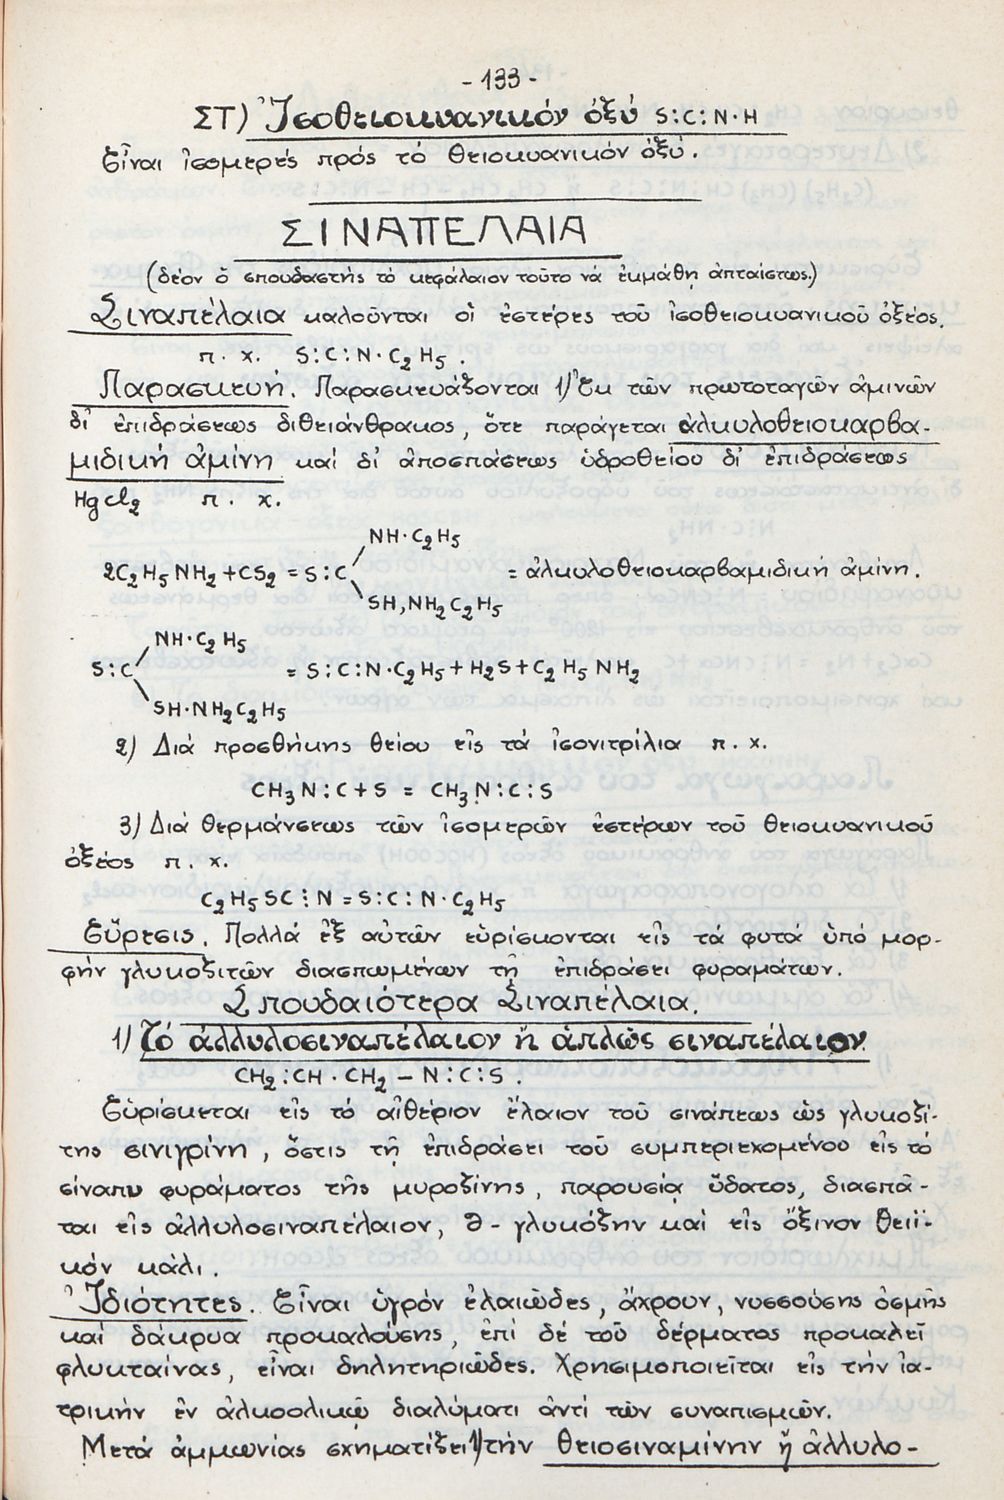 - 133 -
ΣΤ) Ἰσοθειοκυανικόν ὀξύ S:C:N·H
Εἶναι ἰσομερές πρός τό θειοκυανικόν ὀξύ.
ΣΙΝΑΠΕΛΑΙΑ
(δέον ὁ σπουδαστής τό κεφάλαιον τοῦτο νά ἐκμάθῃ ἀπταίστως)
Σιναπέλαια καλοῦνται οἱ ἐστέρες τοῦ ἰσοθειοκυανικοῦ ὀξέος.
π. χ. S:C:N·C₂H₅.
Παρασκευή. Παρασκευάζονται 1) Ἐκ τῶν πρωτοταγῶν ἀμινῶν
δι' ἐπιδράσεως διθειάνθρακος, ὅτε παράγεται ἀλκυλοθειοκαρβα-
μιδική ἀμίνη καί δι' ἀποσπάσεως ὑδροθείου δι' ἐπιδράσεως
HgCl₂ π. χ.
NH·C₂H₅
2C₂H₅NH₂+CS₂ = S:C = ἀλκυλοθειοκαρβαμιδική ἀμίνη.
SH,NH₂C₂H₅
NH·C₂H₅
S:C = S:C:N·C₂H₅+H₂S+C₂H₅NH₂
SH·NH₂C₂H₅
2) Διά προσθήκης θείου εἰς τά ἰσονιτρίλια π. χ.
CH₃N:C+S = CH₃N:C:S
3) Διά θερμάνσεως τῶν ἰσομερῶν ἐστέρων τοῦ θειοκυανικοῦ
ὀξέος π. χ.
C₂H₅SC⋮N = S:C:N·C₂H₅
Εὕρεσις. Πολλά ἐξ αὐτῶν εὑρίσκονται εἰς τά φυτά ὑπό μορ-
φήν γλυκοζιτῶν διασπωμένων τῇ ἐπιδράσει φυραμάτων.
Σπουδαιότερα Σιναπέλαια.
1) Τό ἀλλυλοσιναπέλαιον ἤ ἁπλῶς σιναπέλαιον
CH₂:CH·CH₂ – N:C:S.
Εὑρίσκεται εἰς τό αἰθέριον ἔλαιον τοῦ σινάπεως ὡς γλυκοζί-
της σινιγρίνη, ὅστις τῇ ἐπιδράσει τοῦ συμπεριεχομένου εἰς τό
σίναπυ φυράματος τῆς μυροζίνης, παρουσίᾳ ὕδατος, διασπᾶ-
ται εἰς ἀλλυλοσιναπέλαιον, ∂-γλυκόζην καί εἰς ὄξινον θειϊ-
κόν κάλι.
Ἰδιότητες. Εἶναι ὑγρόν ἐλαιῶδες, ἄχρουν, νυσσούσης ὀσμῆς
καί δάκρυα προκαλούσης, ἐπί δέ τοῦ δέρματος προκαλεῖ
φλυκταίνας, εἶναι δηλητηριῶδες. Χρησιμοποιεῖται εἰς τήν ἰα-
τρικήν ἐν ἀλκοολικῷ διαλύματι ἀντί τῶν συναπισμῶν.
Μετά ἀμμωνίας σχηματίζει 1) τήν θειοσιναμίνην ἤ ἀλλυλο-